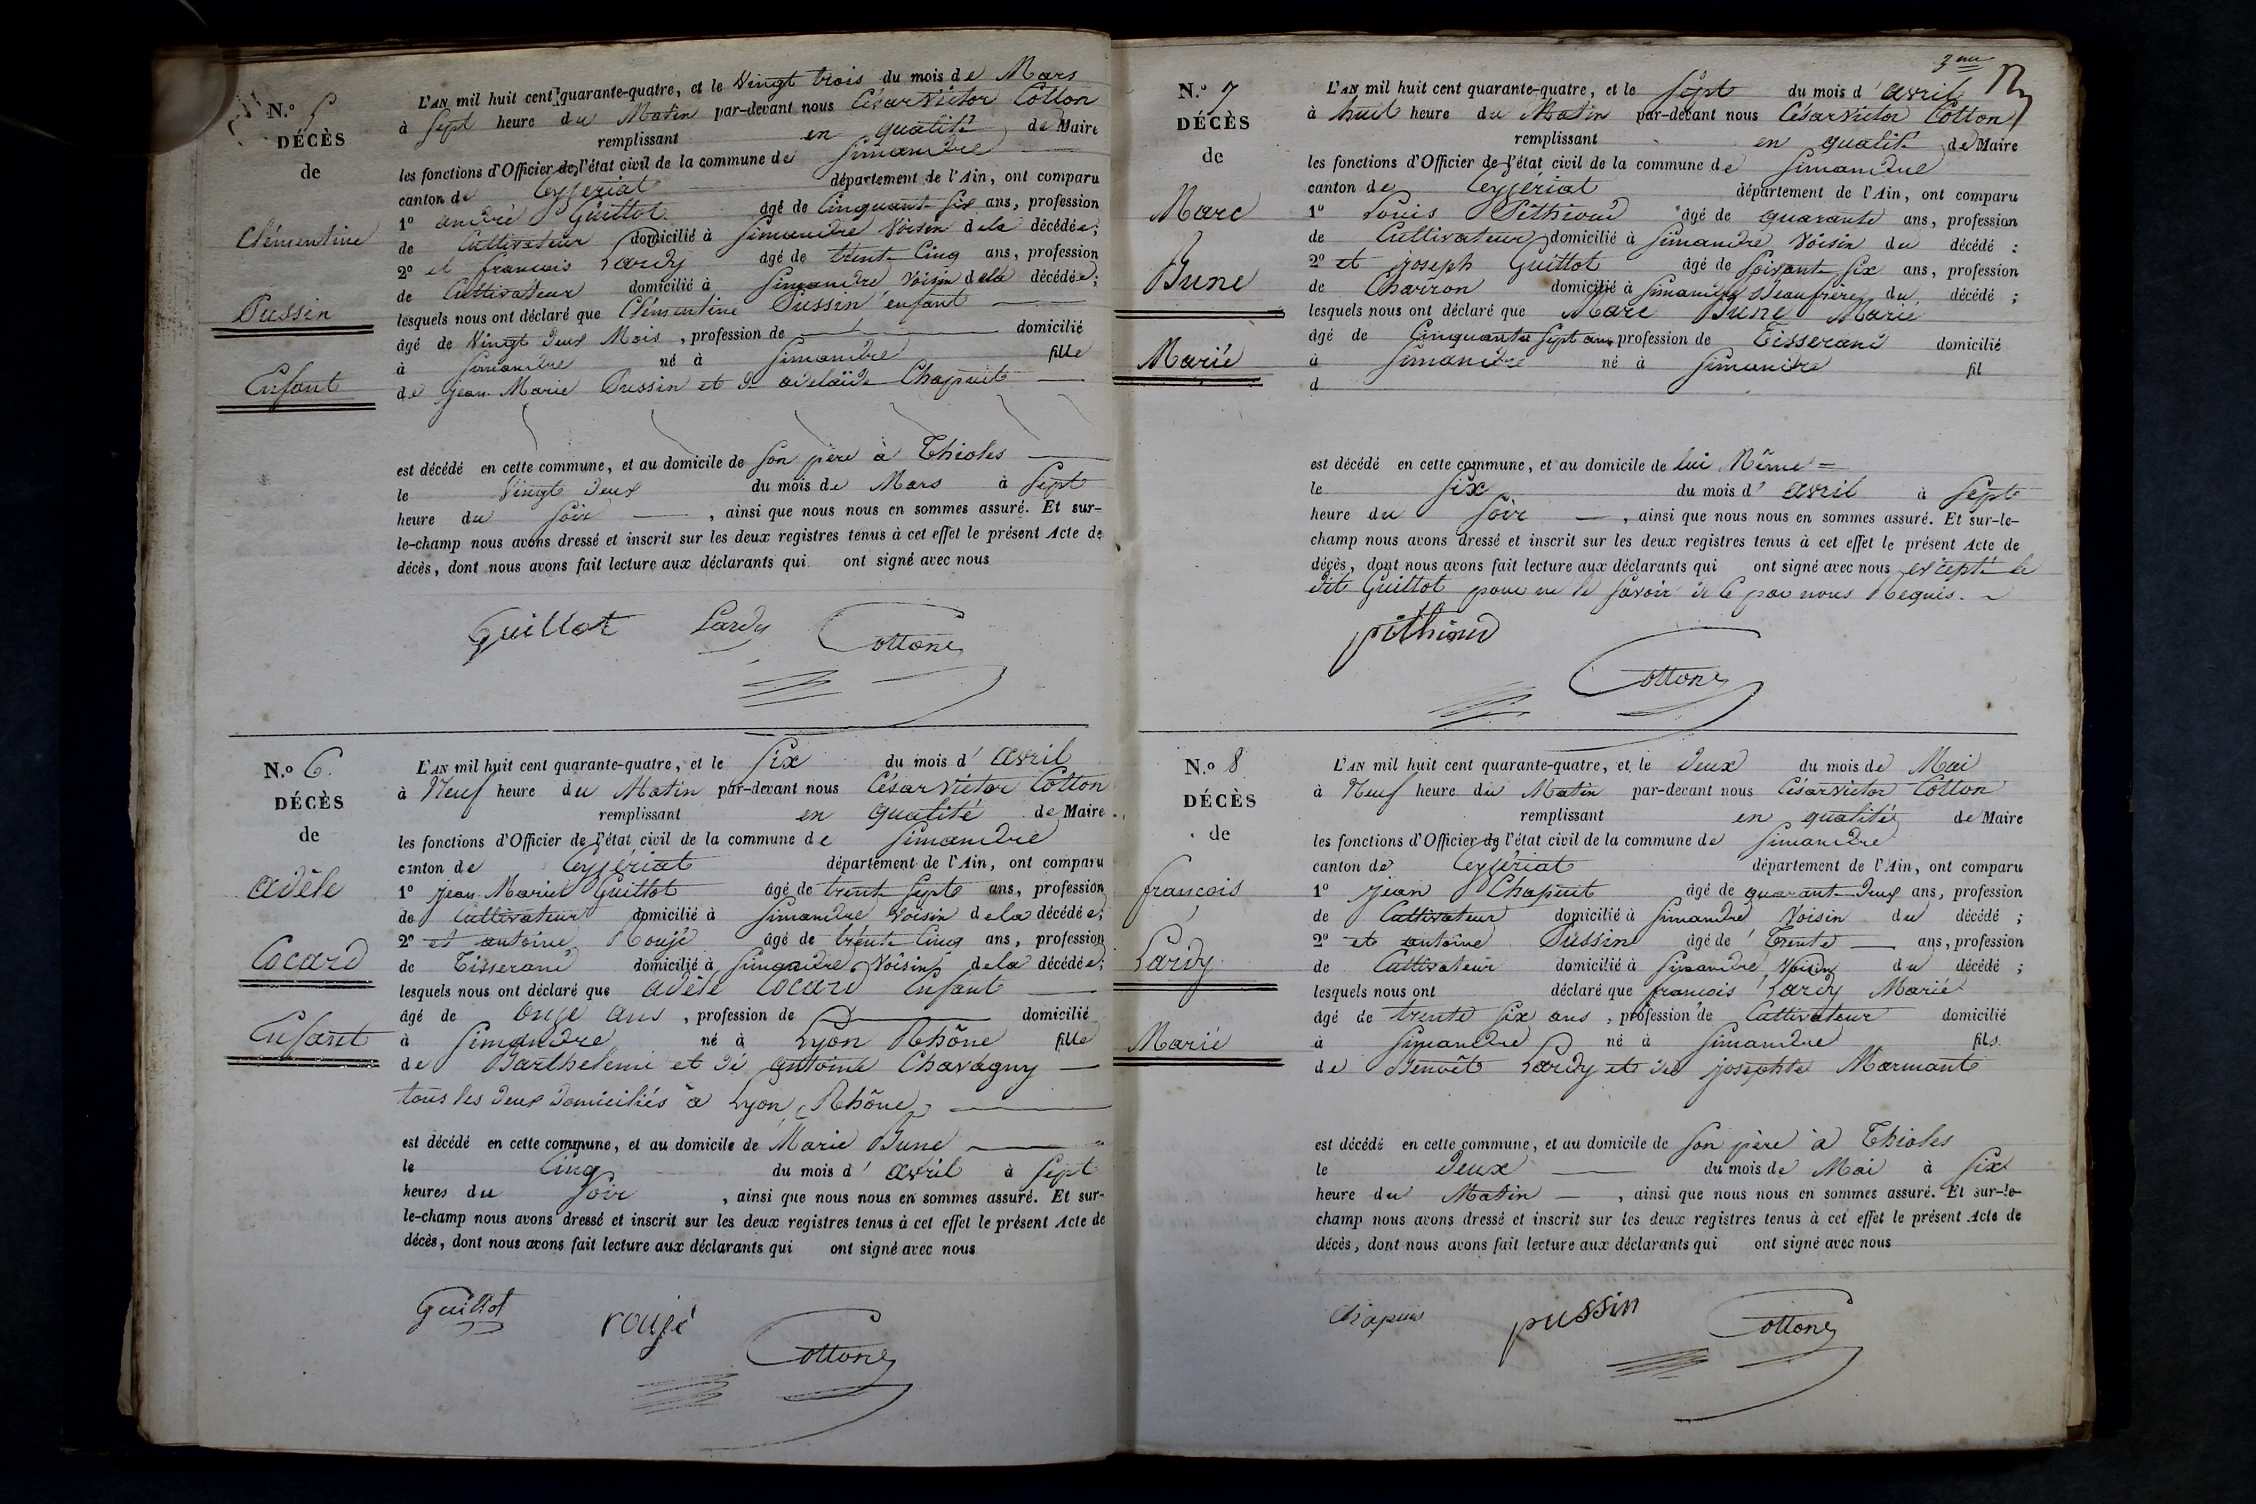 N.º 5
DÉCÈS
de
Clémentine
Pussin
Enfant
L'AN mil huit cent quarante-quatre, et le Vingt trois du mois de Mars
à Sept heure du Matin par-devant nous César Victor Cotton
remplissant en qualité de Maire
les fonctions d'Officier de l'état civil de la commune de Simandre
canton de Ceyzeriat département de l'Ain, ont comparu
1º andré Guillot âgé de Cinquante Six ans, profession
de Cultivateur domicilié à Simandre Voisin de la décédée;
2º et francois Lardy âgé de trente Cinq ans, profession
de Cultivateur domicilié à Simandre Voisin dela décédée;
lesquels nous ont déclaré que Clémentine Pussin enfant
âgé de Vingt Deux Mois, profession de domicilié
à Simandre né à Simandre fille
de jean Marie Pussin et D adelaïde Chapuit
est décédé en cette commune, et au domicile de Son père à Thioles
le Vingt Deux du mois de Mars à Sept
heure du Soir, ainsi que nous nous en sommes assuré. Et sur-
le-champ nous avons dressé et inscrit sur les deux registres tenus à cet effet le présent Acte de
décès, dont nous avons fait lecture aux déclarants qui ont signé avec nous
Guillot Lardy Cotton
N.º 6.
DÉCÈS
de
adèle
Cocard
Enfant
L'AN mil huit cent quarante-quatre, et le Six du mois d'avril
à Neuf heure du Matin par-devant nous César Victor Cotton
remplissant en qualité de Maire
les fonctions d'Officier de l'état civil de la commune de Simandre
canton de Ceyzériat département de l'Ain, ont comparu
1º jean Mariel Guillot âgé de trente Sept ans, profession
de Cultivateur domicilié à Simandre Voisin dela décédée;
2º et antoine Roujé âgé de trente Cinq ans, profession
de Tisserand domicilié à Simandre Voisins dela décédée;
lesquels nous ont déclaré que adèle Cocard Enfant
âgé de onze ans, profession de domicilié
à Simandre né à Lyon Rhône fille
de Barthelemi et de antoine Chavagny
tous les deux domiciliés à Lyon, Rhône,
est décédé en cette commune, et au domicile de Marie Bune
le Cinq du mois d'avril à Sept
heures du Soir, ainsi que nous nous en sommes assuré. Et sur-
le-champ nous avons dressé et inscrit sur les deux registres tenus à cet effet le présent Acte de
décès, dont nous avons fait lecture aux déclarants qui ont signé avec nous
Guillot roujé Cotton
N.º 7
DÉCÈS
de
Marc
Bune
Marié
L'AN mil huit cent quarante-quatre, et le Sept du mois d'avril
à huit heure du Matin par-devant nous César Victor Cotton
remplissant en qualité de Maire
les fonctions d'Officier de l'état civil de la commune de Simandre
canton de Ceyzériat département de l'Ain, ont comparu
1º Louis Pithioud âgé de quarante ans, profession
de Cultivateur domicilié à Simandre Voisin du décédé;
2º et joseph Guillot âgé de Soixante Six ans, profession
de Charron domicilié à Simandre Beaufrère du décédé;
lesquels nous ont déclaré que Marc Bune Marié
âgé de Cinquante Sept ans profession de Tisserand domicilié
à Simandre né à Simandre fil
d
est décédé en cette commune, et au domicile de lui Même
le Six du mois d'avril à Sept
heure du Soir, ainsi que nous nous en sommes assuré. Et sur-le-
champ nous avons dressé et inscrit sur les deux registres tenus à cet effet le présent Acte de
décès, dont nous avons fait lecture aux déclarants qui ont signé avec nous excepté le
dit Guillot pour ne le Savoir de ce par nous Requis.
pithioud
Cotton
N.º 8
DÉCÈS
de
francois
Lardy
Marié
L'AN mil huit cent quarante-quatre, et le deux du mois de Mai
à Neuf heure du Matin par-devant nous César victor Cotton
remplissant en qualité de Maire
les fonctions d'Officier de l'état civil de la commune de Simandre
canton de Ceyzériat département de l'Ain, ont comparu
1º jean Chapuit âgé de quarante-deux ans, profession
de Cultivateur domicilié à Simandre Voisin du décédé;
2º et antoine Pussin âgé de Trente ans, profession
de Cultivateur domicilié à Simandre Voisin du décédé;
lesquels nous ont déclaré que francois Lardy Marié
âgé de trente Six ans, profession de Cultivateur domicilié
à Simandre né à Simandre fils
de Benoît Lardy et de josephte Marmont
est décédé en cette commune, et au domicile de Son père à Thioles
le Deux du mois de Mai à Six
heure du Matin, ainsi que nous nous en sommes assuré. Et sur-le-
champ nous avons dressé et inscrit sur les deux registres tenus à cet effet le présent Acte de
décès, dont nous avons fait lecture aux déclarants qui ont signé avec nous
Chapuis pussin Cotton